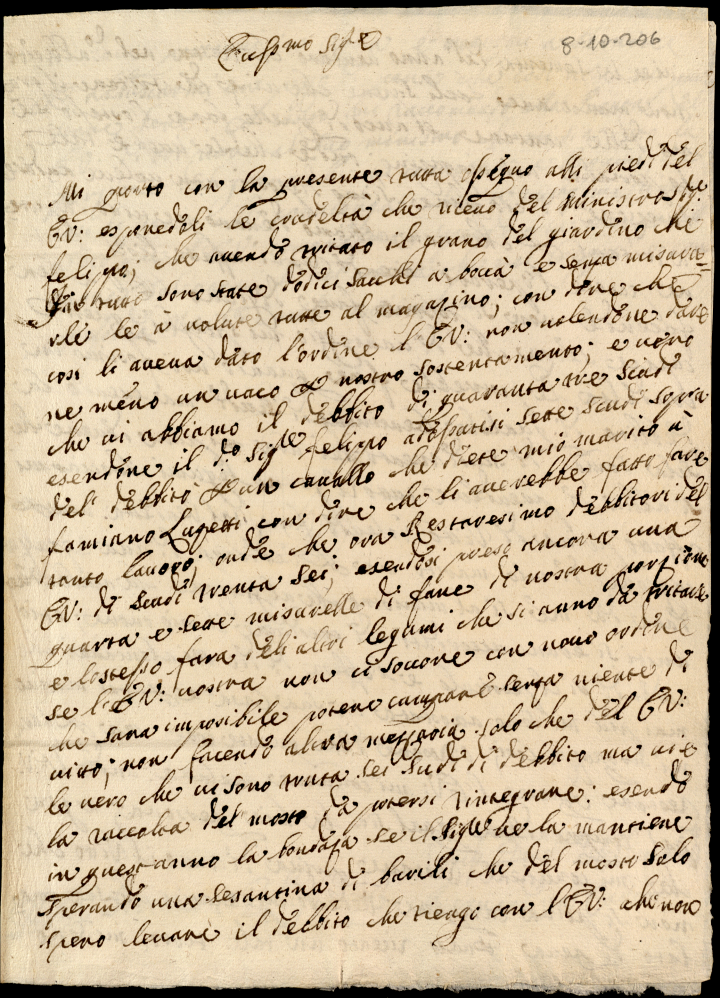 8-10-206
Illusmo Sigre
Mi porto con la presente tutta osequo alli piedi del
EV: esponedoli le crudeltà che riceuo del Ministro Sigr
felippo; che auendo tritato il grano del giardino che
tutto sono state dodici sacchi a boccà e senza misura=
rle le à uolute tutte al magazino; con dire che
cosi li aueua dato l'ordine l'EV: non uolendone dare
ne meno un uaco nostro sostentamento; e uero
che ui abbiamo il debbito di quaranta tre scudi
esendone il do Sigre felippo adossatisi sette scudi sopra
del debbito un cauallo che diete mio marito à
famiano Lupetti con dire che li auerebbe fatto fare
tanto lauoro; onde che ora Restaresimo debbitori del
EV: di scudi trenta sei; esendosi preso ancora una
quarta e sette misurelle di faue di nostra porzione
e lostesso fara deli altri legumi che si anno da tritare
se l'EV: nostra non ci socorre con nouo ordine
che sara imposibile potere campare senza niente di
uitto; non facendo altra messaria solo che del EV:
le uero che ui sono trenta sei scudi di debbito ma ui e
la raccolta del mosto da potersi rintegrare: esendo
in quest anno la bondaza se il Sigre ne la mantiene
sperando una sesantina di barili che del mosto solo
spero leuare il debbito che tiengo con l'EV: che non